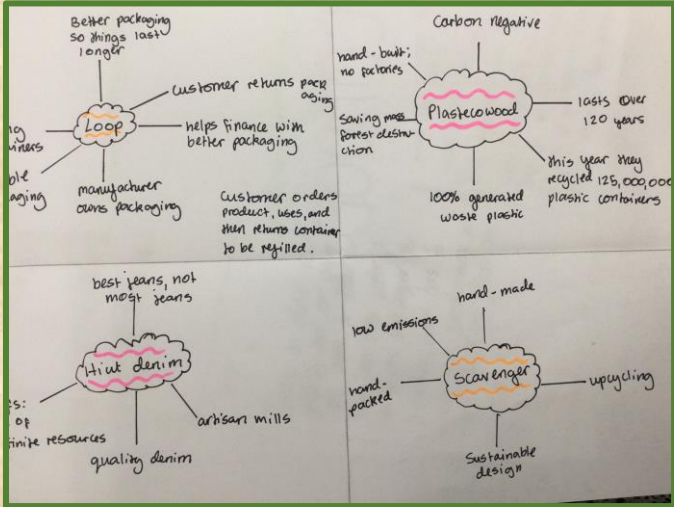 Better packaging
so things last
longer
customer returns pack
aging
Loop
helps finance with
better packaging
manufacturer
owns packaging
Customer orders
product, uses, and
then returns container
to be refilled.
Carbon negative
hand-built;
no factories
Plastecowood
lasts over
120 years
Saving mass
forest destru
ction
this year they
recycled 125,000,000
plastic containers
100% generated
waste plastic
best jeans, not
most jeans
Hiut denim
of
resources
artisan mills
quality denim
hand-made
low emissions
Scavenger
hand-
packed
upcycling
Sustainable
design